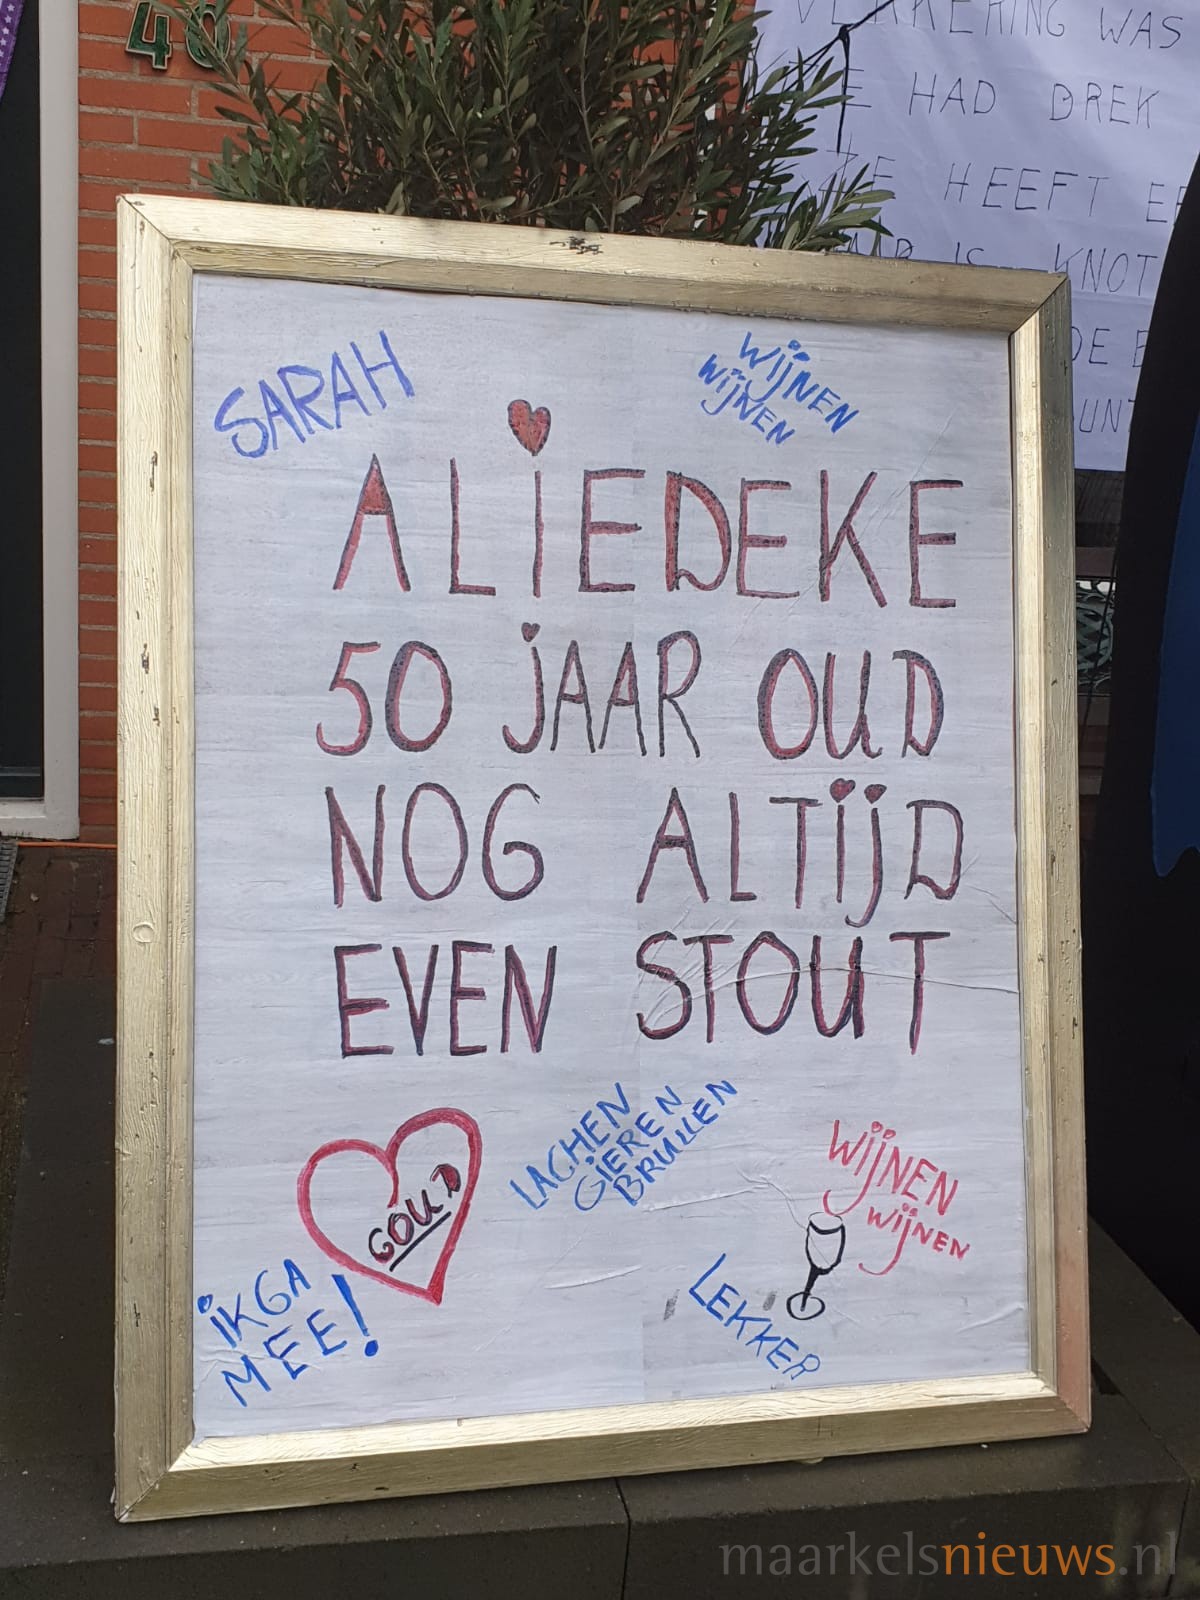 40
WAS
HAD DREK
HEEFT
IS KNOT
DE
SARAH
WIJNEN
WIJNEN
ALIEDEKE
50 JAAR OUD
NOG ALTIJD
EVEN STOUT
LACHEN
GIEREN
BRULLEN
GOUD
WIJNEN
WIJNEN
IK GA
MEE!
LEKKER
maarkelsnieuws.nl